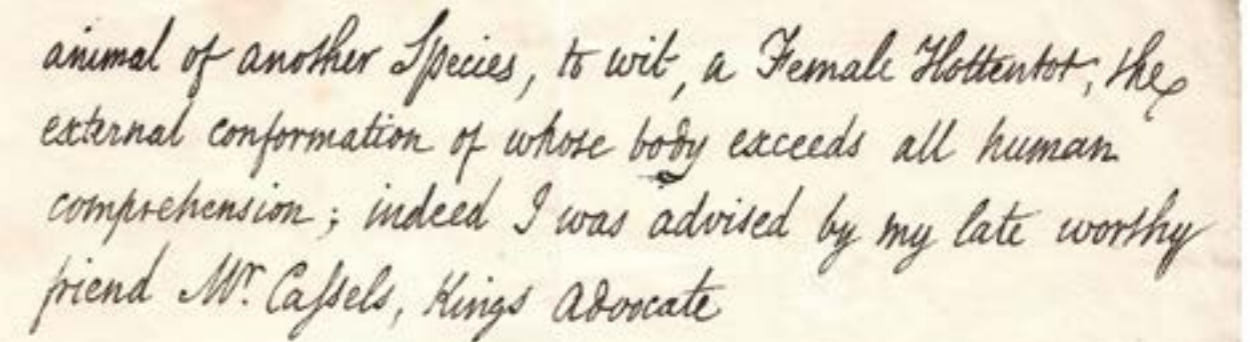 animal of another Species, to wit, a Female Hottentot, the
external conformation of whose body exceeds all human
comprehension; indeed I was advised by my late worthy
friend Mr. Caſsels, Kings Advocate